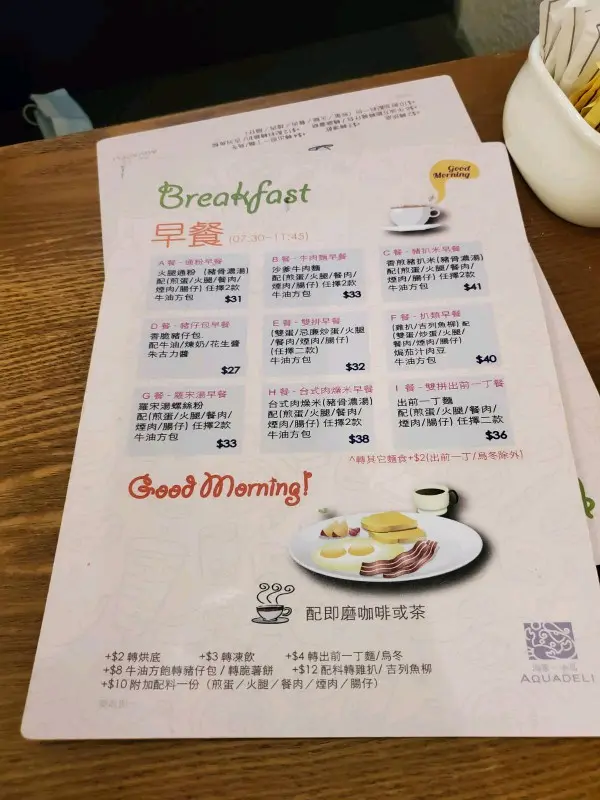 Good
Morning
Breakfast
早餐 (07:30~11:45)
A 餐 - 通粉早餐
火腿通粉 (豬骨濃湯)
配(煎蛋/火腿/餐肉/
煙肉/腸仔) 任擇2款
牛油方包
$31
B 餐 - 牛肉麵早餐
沙爹牛肉麵
配(煎蛋/火腿/餐肉/
煙肉/腸仔) 任擇2款
牛油方包
$33
C 餐 - 豬扒米早餐
香煎豬扒米(豬骨濃湯)
配(煎蛋/火腿/餐肉/
煙肉/腸仔) 任擇2款
牛油方包
$41
D 餐 - 豬仔包早餐
香脆豬仔包
配牛油/煉奶/花生醬
朱古力醬
$27
E 餐 - 雙拼早餐
(雙蛋/忌廉炒蛋/火腿
/餐肉/煙肉/腸仔)
(任擇二款)
牛油方包
$32
F 餐 - 扒類早餐
(雞扒/吉列魚柳) 配
(雙蛋/炒蛋/火腿/
餐肉/煙肉/腸仔)
焗茄汁肉豆
牛油方包
$40
G 餐 - 羅宋湯早餐
羅宋湯螺絲粉
配(煎蛋/火腿/餐肉/
煙肉/腸仔) 任擇2款
牛油方包
$33
H 餐 - 台式肉燥米早餐
台式肉燥米(豬骨濃湯)
配(煎蛋/火腿/餐肉/
煙肉/腸仔) 任擇2款
牛油方包
$38
I 餐 - 雙拼出前一丁餐
出前一丁麵
配(煎蛋/火腿/餐肉/
煙肉/腸仔) 任擇2款
牛油方包
$36
^轉其它麵食+$2(出前一丁/烏冬除外)
Good Morning!
配即磨咖啡或茶
+$2 轉烘底 +$3 轉凍飲 +$4 轉出前一丁麵/烏冬
+$8 牛油方飽轉豬仔包 / 轉脆薯餅 +$12 配料轉雞扒/ 吉列魚柳
+$10 附加配料一份 (煎蛋/火腿/餐肉/煙肉/腸仔)
AQUADELI